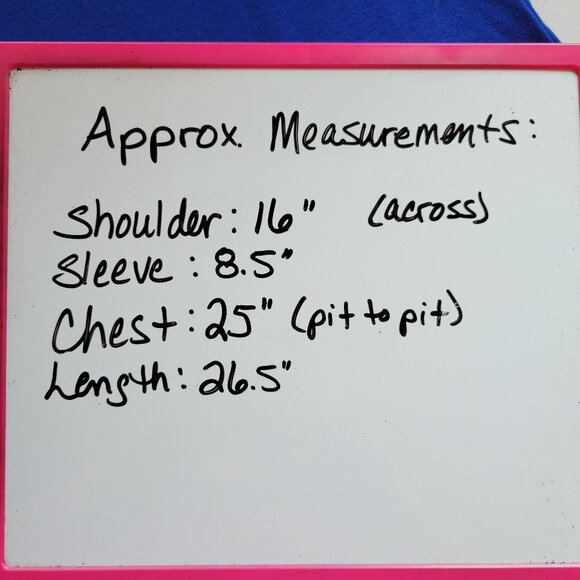 Approx. Measurements:
Shoulder: 16" (across)
Sleeve: 8.5"
Chest: 25" (pit to pit)
Length: 26.5"